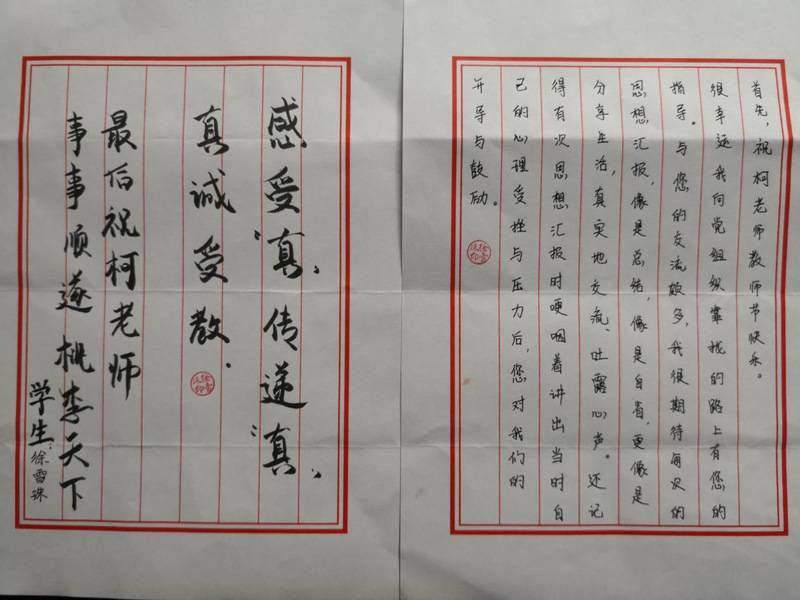 首先，祝柯老师教师节快乐。
很幸运我向党组织靠拢的路上有您的
指导。与您的交流颇多，我很期待每次的
思想汇报，像是总结，像是自省，更像是
分享生活，真实地交流、吐露心声。还记
得有次思想汇报时哽咽着讲出当时自
己的心理受挫与压力后，您对我们的
开导与鼓励。
感受“真”传递“真”
真诚受教.
最后祝柯老师
事事顺遂桃李天下
学生：徐雪珠